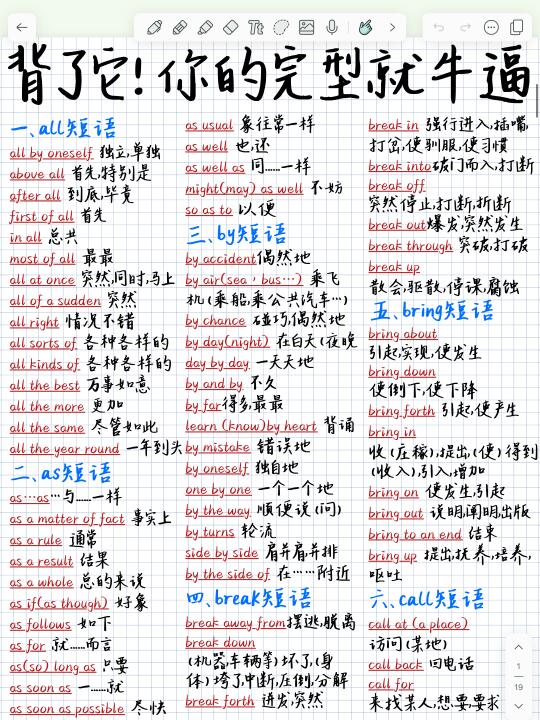 Tt
背了它!你的完型就牛逼
一、all短语
all by oneself 独立,单独
above all 首先,特别是
after all 到底,毕竟
first of all 首先
in all 总共
most of all 最最
all at once 突然,同时,马上
all of a sudden 突然
all right 情况不错
all sorts of 各种各样的
all kinds of 各种各样的
all the best 万事如意
all the more 更加
all the same 尽管如此
all the year round 一年到头
二、as短语
as…as…与……一样
as a matter of fact 事实上
as a rule 通常
as a result 结果
as a whole 总的来说
as if(as though) 好象
as follows 如下
as for 就……而言
as(so) long as 只要
as soon as 一……就
as soon as possible 尽快
as usual 象往常一样
as well 也,还
as well as 同……一样
might(may) as well 不妨
so as to 以便
三、by短语
by accident偶然地
by air(sea,bus…) 乘飞
机(乘船,乘公共汽车…)
by chance 碰巧,偶然地
by day(night) 在白天(夜晚
day by day 一天天地
by and by 不久
by far得多,最最
learn (know)by heart 背诵
by mistake 错误地
by oneself 独自地
one by one 一个一个地
by the way 顺便说(问)
by turns 轮流
side by side 肩并肩,并排
by the side of 在……附近
四、break短语
break away from摆逃,脱离
break down
(机器,车辆等)坏了,(身
体)垮了,中断,压倒,分解
break forth 迸发,突然
break in 强行进入,插嘴,
打岔,使驯服,使习惯
break into破门而入,打断
break off
突然停止,打断,折断
break out爆发,突然发生
break through 突破,打破
break up
散会,驱散,停课,腐蚀
五、bring短语
bring about
引起,实现,使发生
bring down
使倒下,使下降
bring forth 引起,使产生
bring in
收(庄稼),提出,(使)得到
(收入),引入,增加
bring on 使发生,引起
bring out 说明,阐明,出版
bring to an end 结束
bring up 提出,抚养,培养,
呕吐
六、call短语
call at (a place)
访问(某地)
call back 回电话
call for
来找某人,想要,要求
1
19